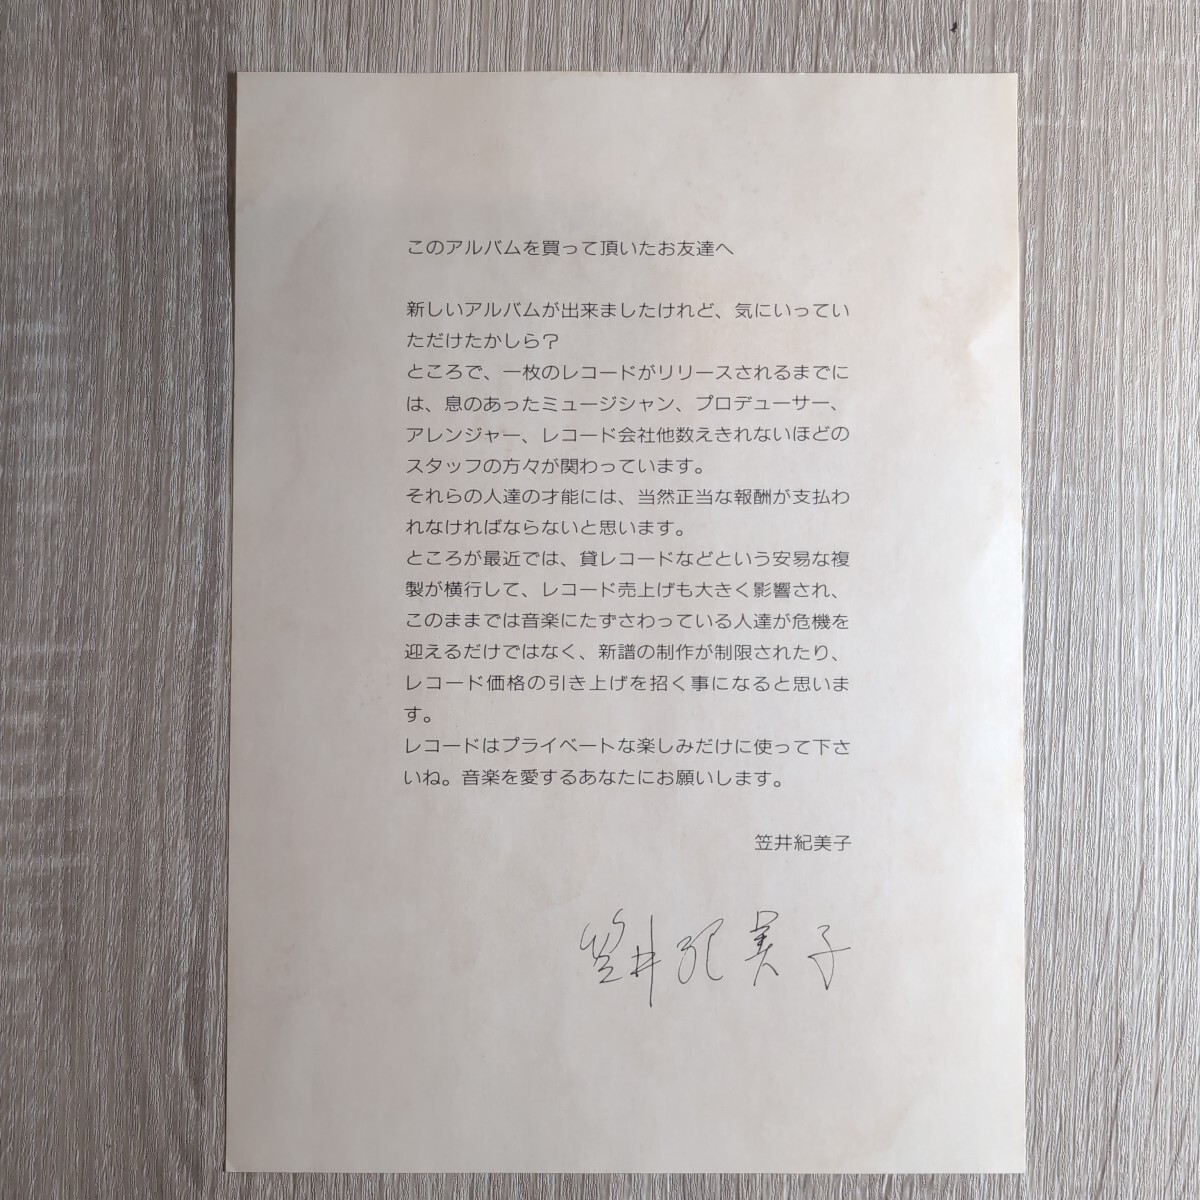 このアルバムを買って頂いたお友達へ
新しいアルバムが出来ましたけれど、気にいってい
ただけたかしら？
ところで、一枚のレコードがリリースされるまでに
は、息のあったミュージシャン、プロデューサー、
アレンジャー、レコード会社他数えきれないほどの
スタッフの方々が関わっています。
それらの人達の才能には、当然正当な報酬が支払わ
れなければならないと思います。
ところが最近では、貸レコードなどという安易な複
製が横行して、レコード売上げも大きく影響され、
このままでは音楽にたずさわっている人達が危機を
迎えるだけではなく、新譜の制作が制限されたり、
レコード価格の引き上げを招く事になると思いま
す。
レコードはプライベートな楽しみだけに使って下さ
いね。音楽を愛するあなたにお願いします。
笠井紀美子
笠井紀美子